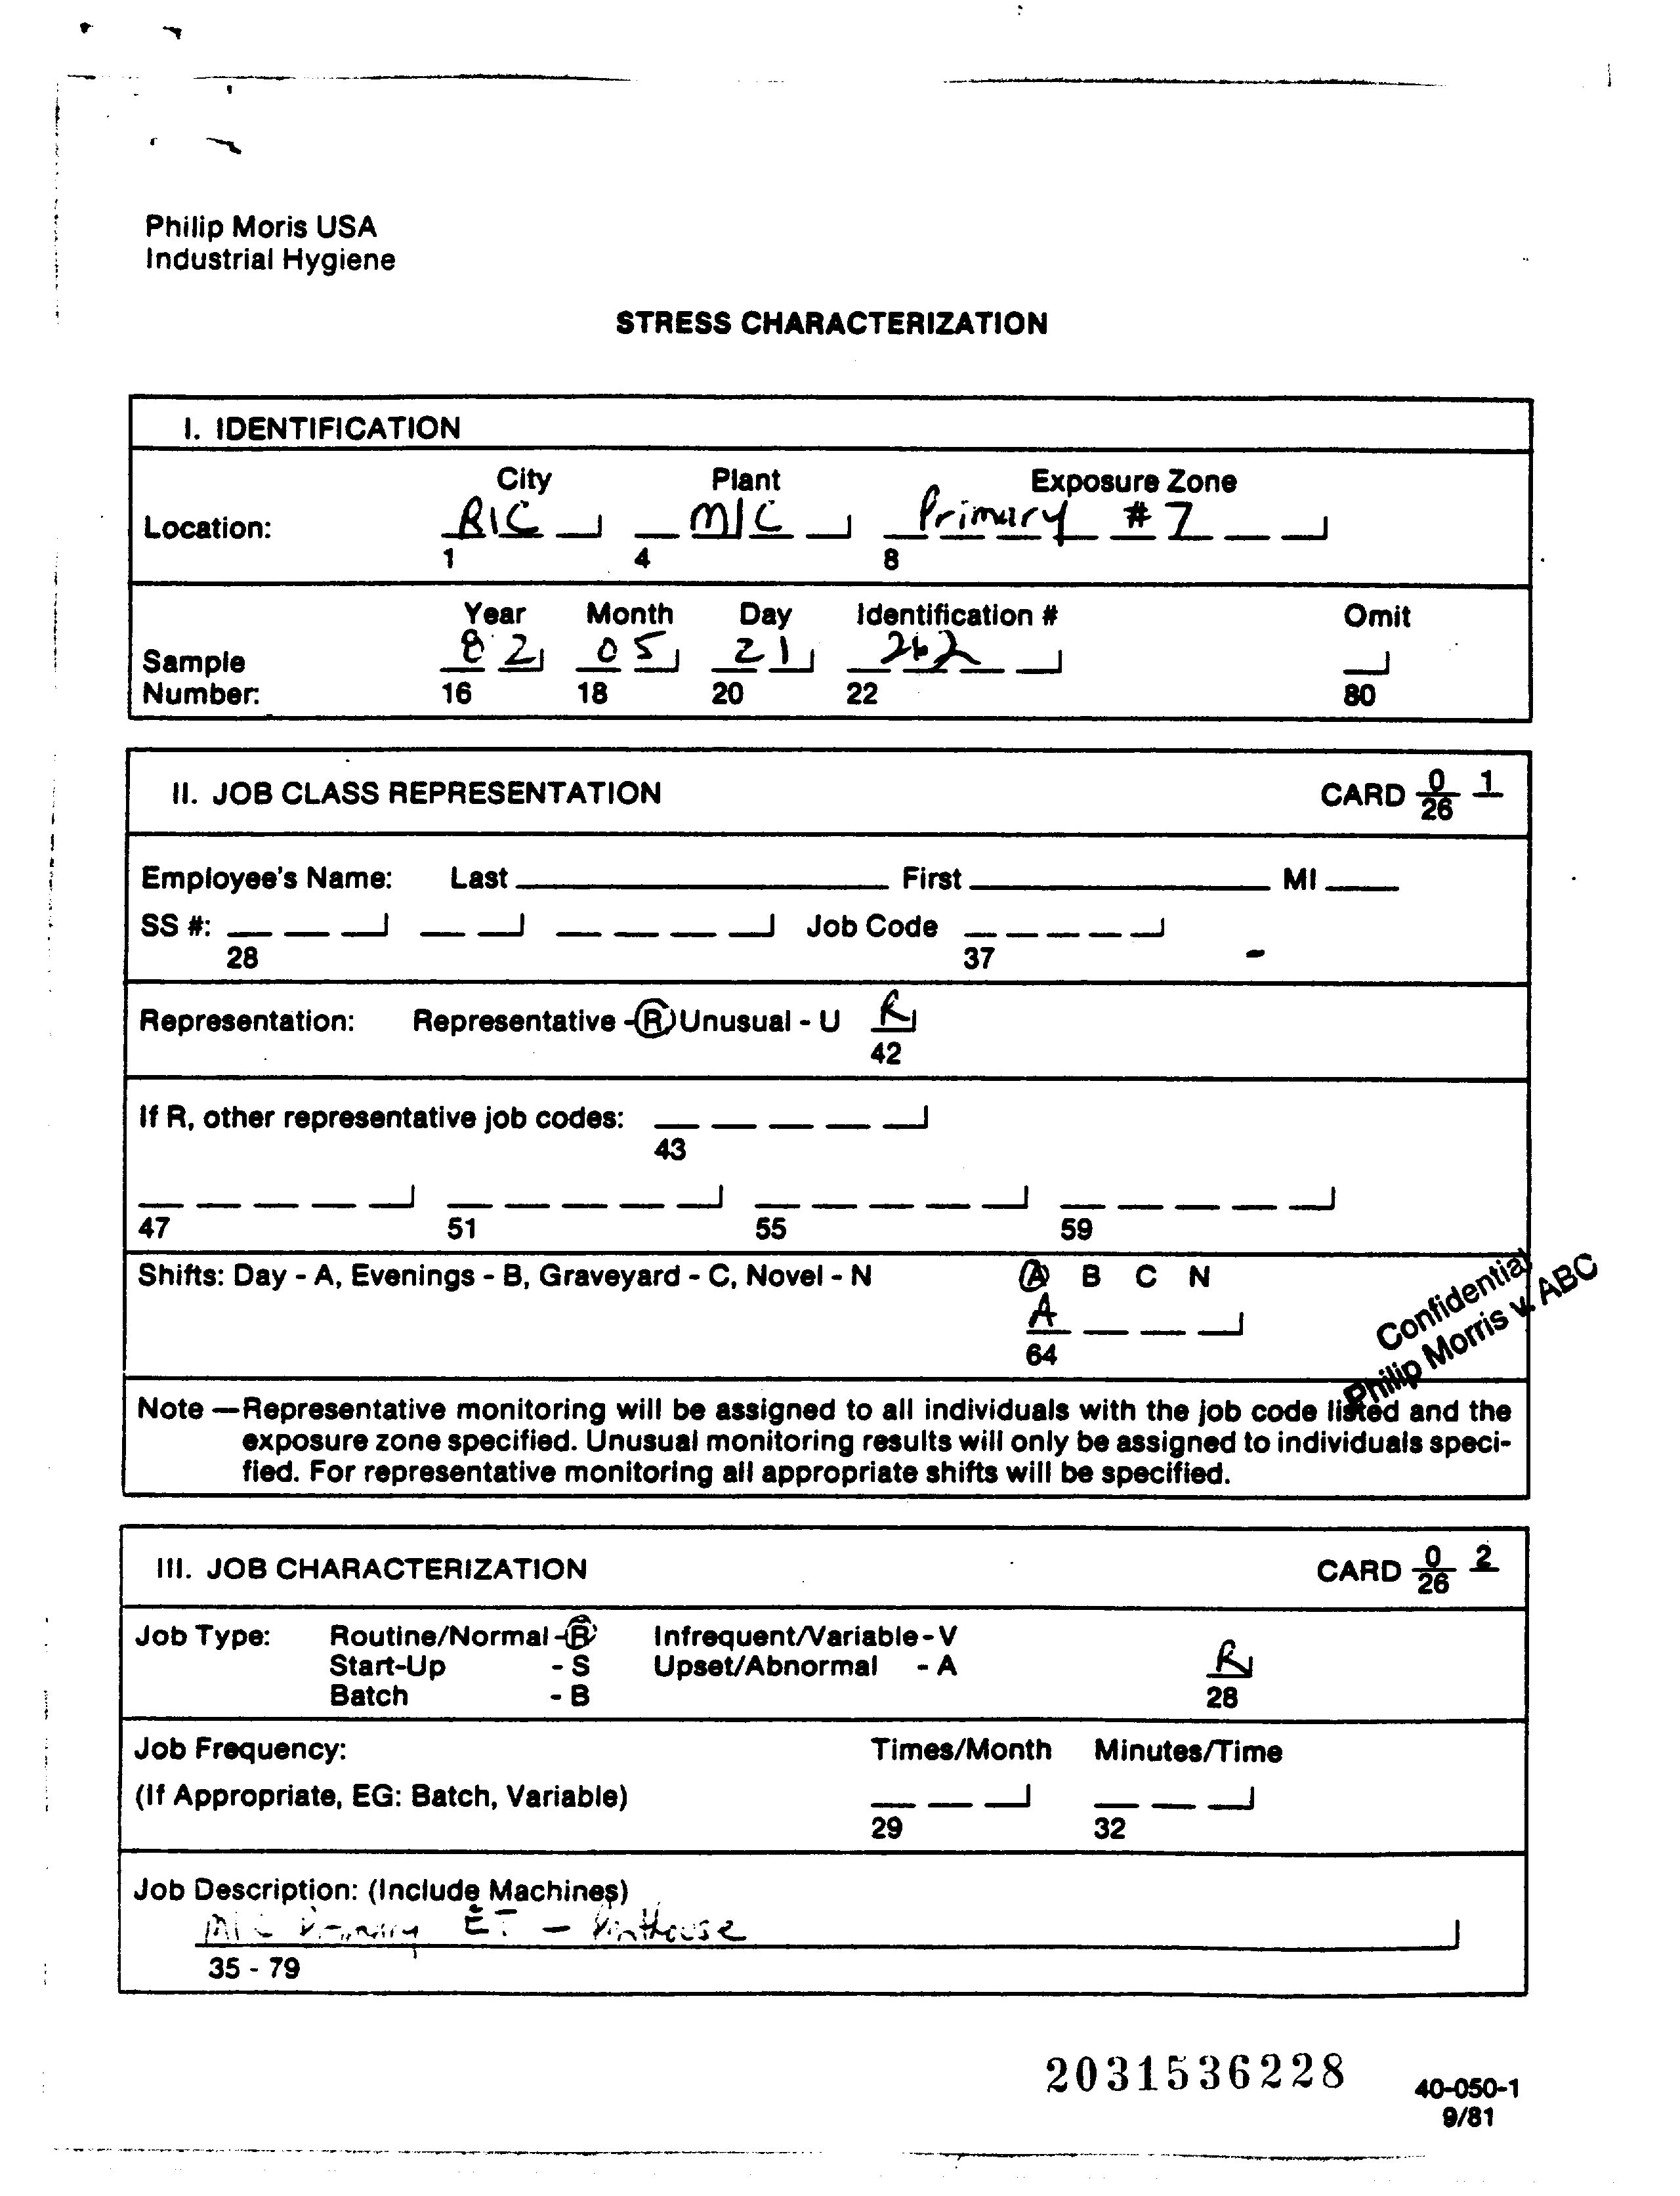 Philip Moris USA
Industrial Hygiene
STRESS CHARACTERIZATION
I. IDENTIFICATION
City Plant Exposure Zone
Location: RIC MIC Primary #7
1 4 8
Year Month Day Identification # Omit
Sample 82 05 21 262
Number: 16 18 20 22 80
II. JOB CLASS REPRESENTATION CARD 0 1
26
Employee's Name: Last First MI
SS #: Job Code
28 37
Representation: Representative - R Unusual - U R
42
If R, other representative job codes:
43
47 51 55 59
Shifts: Day - A, Evenings - B, Graveyard - C, Novel - N A B C N
A
64
Confidential
Philip Morris v. ABC
Note — Representative monitoring will be assigned to all individuals with the job code listed and the
exposure zone specified. Unusual monitoring results will only be assigned to individuals speci-
fied. For representative monitoring all appropriate shifts will be specified.
III. JOB CHARACTERIZATION CARD 0 2
26
Job Type: Routine/Normal - R Infrequent/Variable - V
Start-Up - S Upset/Abnormal - A R
Batch - B 28
Job Frequency: Times/Month Minutes/Time
(If Appropriate, EG: Batch, Variable)
29 32
Job Description: (Include Machines)
MIC Primary ET - Penthouse
35 - 79
2031536228
40-050-1
9/81